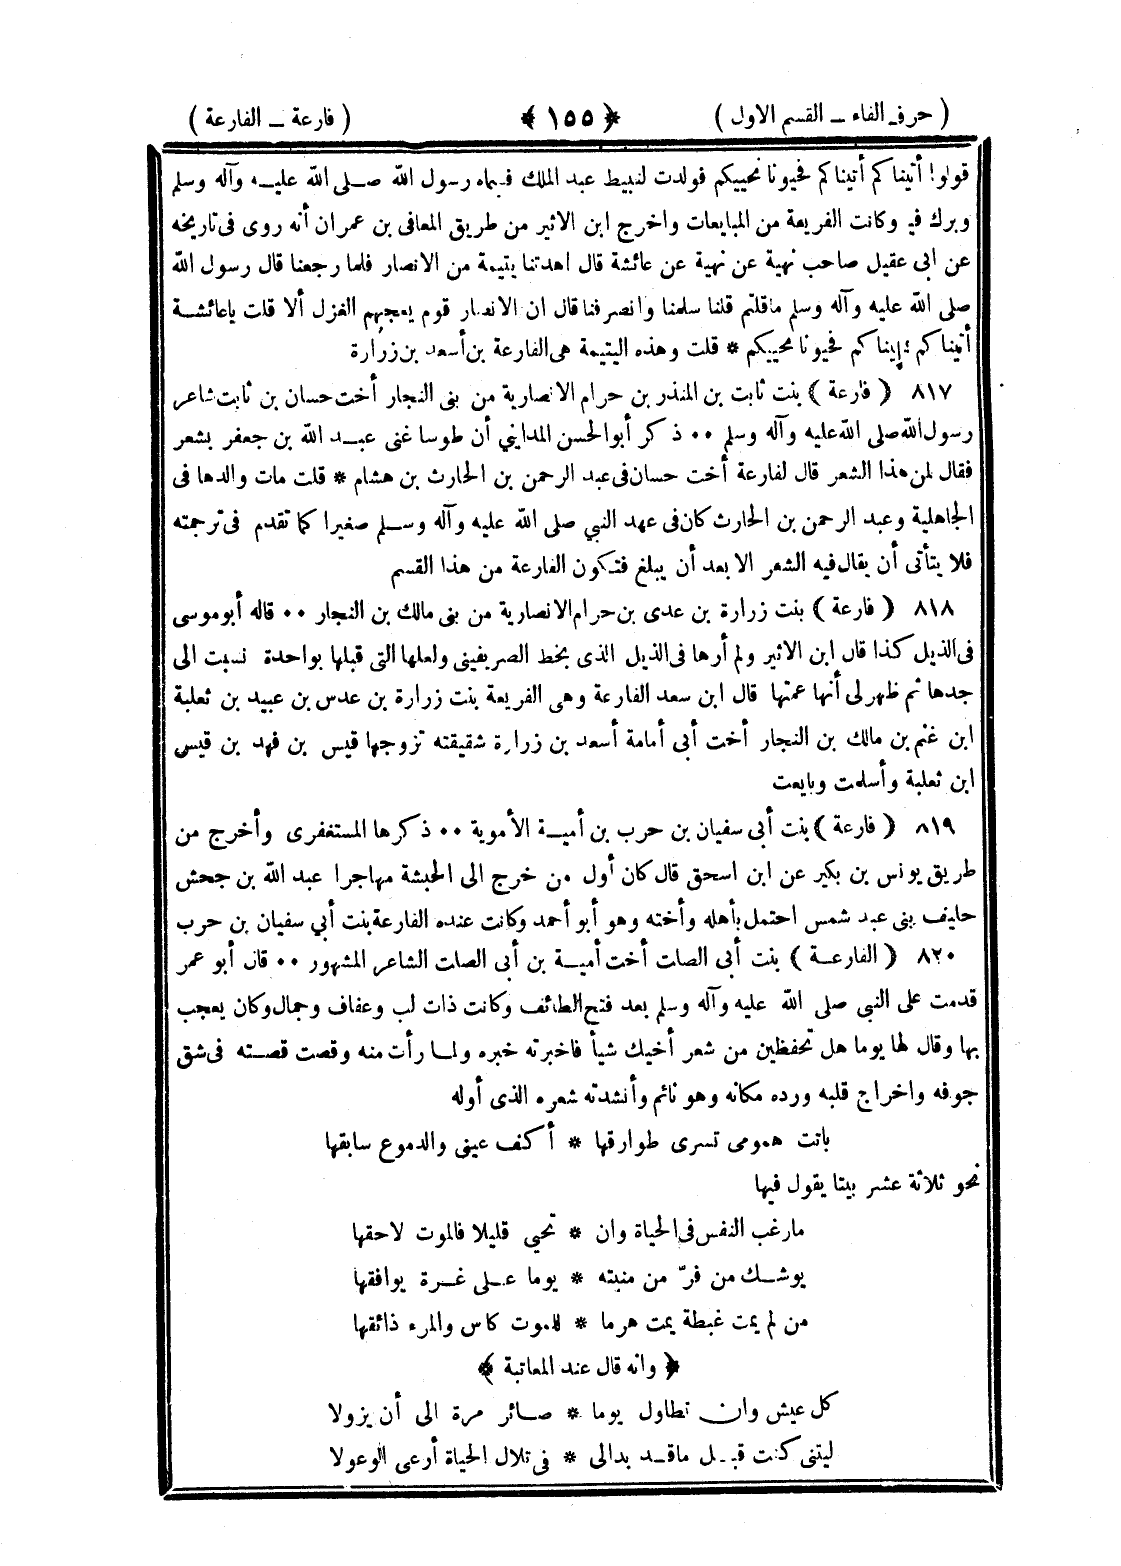 ( حرف الفاء ـ القسم الاول ) ﴿ ١٥٥ ﴾ ( فارعة ـ الفارعة )
قولوا أتيناكم أتيناكم فحيونا نحييكم فولدت لنبيط عبد الملك فسماه رسول الله صلى الله عليه وآله وسلم
وبرك فيه وكانت الفريعة من المبايعات واخرج ابن الاثير من طريق المعافى بن عمران أنه روى فى تاريخه
عن ابى عقيل صاحب نهية عن نهية عن عائشة قال اهدتنا يتيمة من الانصار فلما رجعنا قال رسول الله
صلى الله عليه وآله وسلم ماقلتم قلنا سلمنا وانصرفنا قال ان الانصار قوم يعجبهم الغزل ألا قلت ياعائشة
أتيناكم أتيناكم فحيونا نحييكم * قلت وهذه اليتيمة هى الفارعة بن أسعد بن زرارة
٨١٧ ( فارعة ) بنت ثابت بن المنذر بن حرام الانصارية من بنى النجار أخت حسان بن ثابت شاعر
رسول الله صلى الله عليه وآله وسلم ٠٠ ذكر أبو الحسن المدايني أن طوسا غنى عبد الله بن جعفر بشعر
فقال لمن هذا الشعر قال لفارعة أخت حسان فى عبد الرحمن بن الحارث بن هشام * قلت مات والدها فى
الجاهلية وعبد الرحمن بن الحارث كان فى عهد النبي صلى الله عليه وآله وسلم صغيرا كما تقدم فى ترجمته
فلا يتأتى أن يقال فيه الشعر الا بعد أن يبلغ فتكون الفارعة من هذا القسم
٨١٨ ( فارعة ) بنت زرارة بن عدى بن حرام الانصارية من بنى مالك بن النجار ٠٠ قاله أبو موسى
فى الذيل كذا قال ابن الاثير ولم أرها فى الذيل الذى بخط الصريفينى ولعلها التى قبلها بواحدة نسبت الى
جدها ثم ظهر لى أنها عمتها قال ابن سعد الفارعة وهى الفريعة بنت زرارة بن عدس بن عبيد بن ثعلبة
ابن غنم بن مالك بن النجار أخت أبى أمامة أسعد بن زرارة شقيقته تزوجها قيس بن فهد بن قيس
ابن ثعلبة وأسلمت وبايعت
٨١٩ ( فارعة ) بنت أبى سفيان بن حرب بن أمية الأموية ٠٠ ذكرها المستغفرى وأخرج من
طريق يونس بن بكير عن ابن اسحق قال كان أول من خرج الى الحبشة مهاجرا عبد الله بن جحش
حليف بنى عبد شمس احتمل بأهله وأخته وهو أبو أحمد وكانت عنده الفارعة بنت أبي سفيان بن حرب
٨٢٠ ( الفارعة ) بنت أبى الصات أخت أمية بن أبى الصات الشاعر المشهور ٠٠ قال أبو عمر
قدمت على النبي صلى الله عليه وآله وسلم بعد فتح الطائف وكانت ذات لب وعفاف وجمال وكان يعجب
بها وقال لها يوما هل تحفظين من شعر أخيك شيأ فاخبرته خبره ولما رأت منه وقصت قصته فى شق
جوفه واخراج قلبه ورده مكانه وهو نائم وأنشدته شعره الذى أوله
باتت همومى تسرى طوارقها * أكف عينى والدموع سابقها
نحو ثلاثة عشر بيتا يقول فيها
مارغب النفس فى الحياة وان * تحيى قليلا فالموت لاحقها
يوشك من فرّ من منيته * يوما على غرة يوافقها
من لم يمت غبطة يمت هرما * للموت كاس والمرء ذائقها
﴿ وانه قال عند المعاتبة ﴾
كل عيش وان تطاول يوما * صائر مرة الى أن يزولا
ليتنى كنت قبل ماقد بدالى * فى تلال الحياة أرعى الوعولا